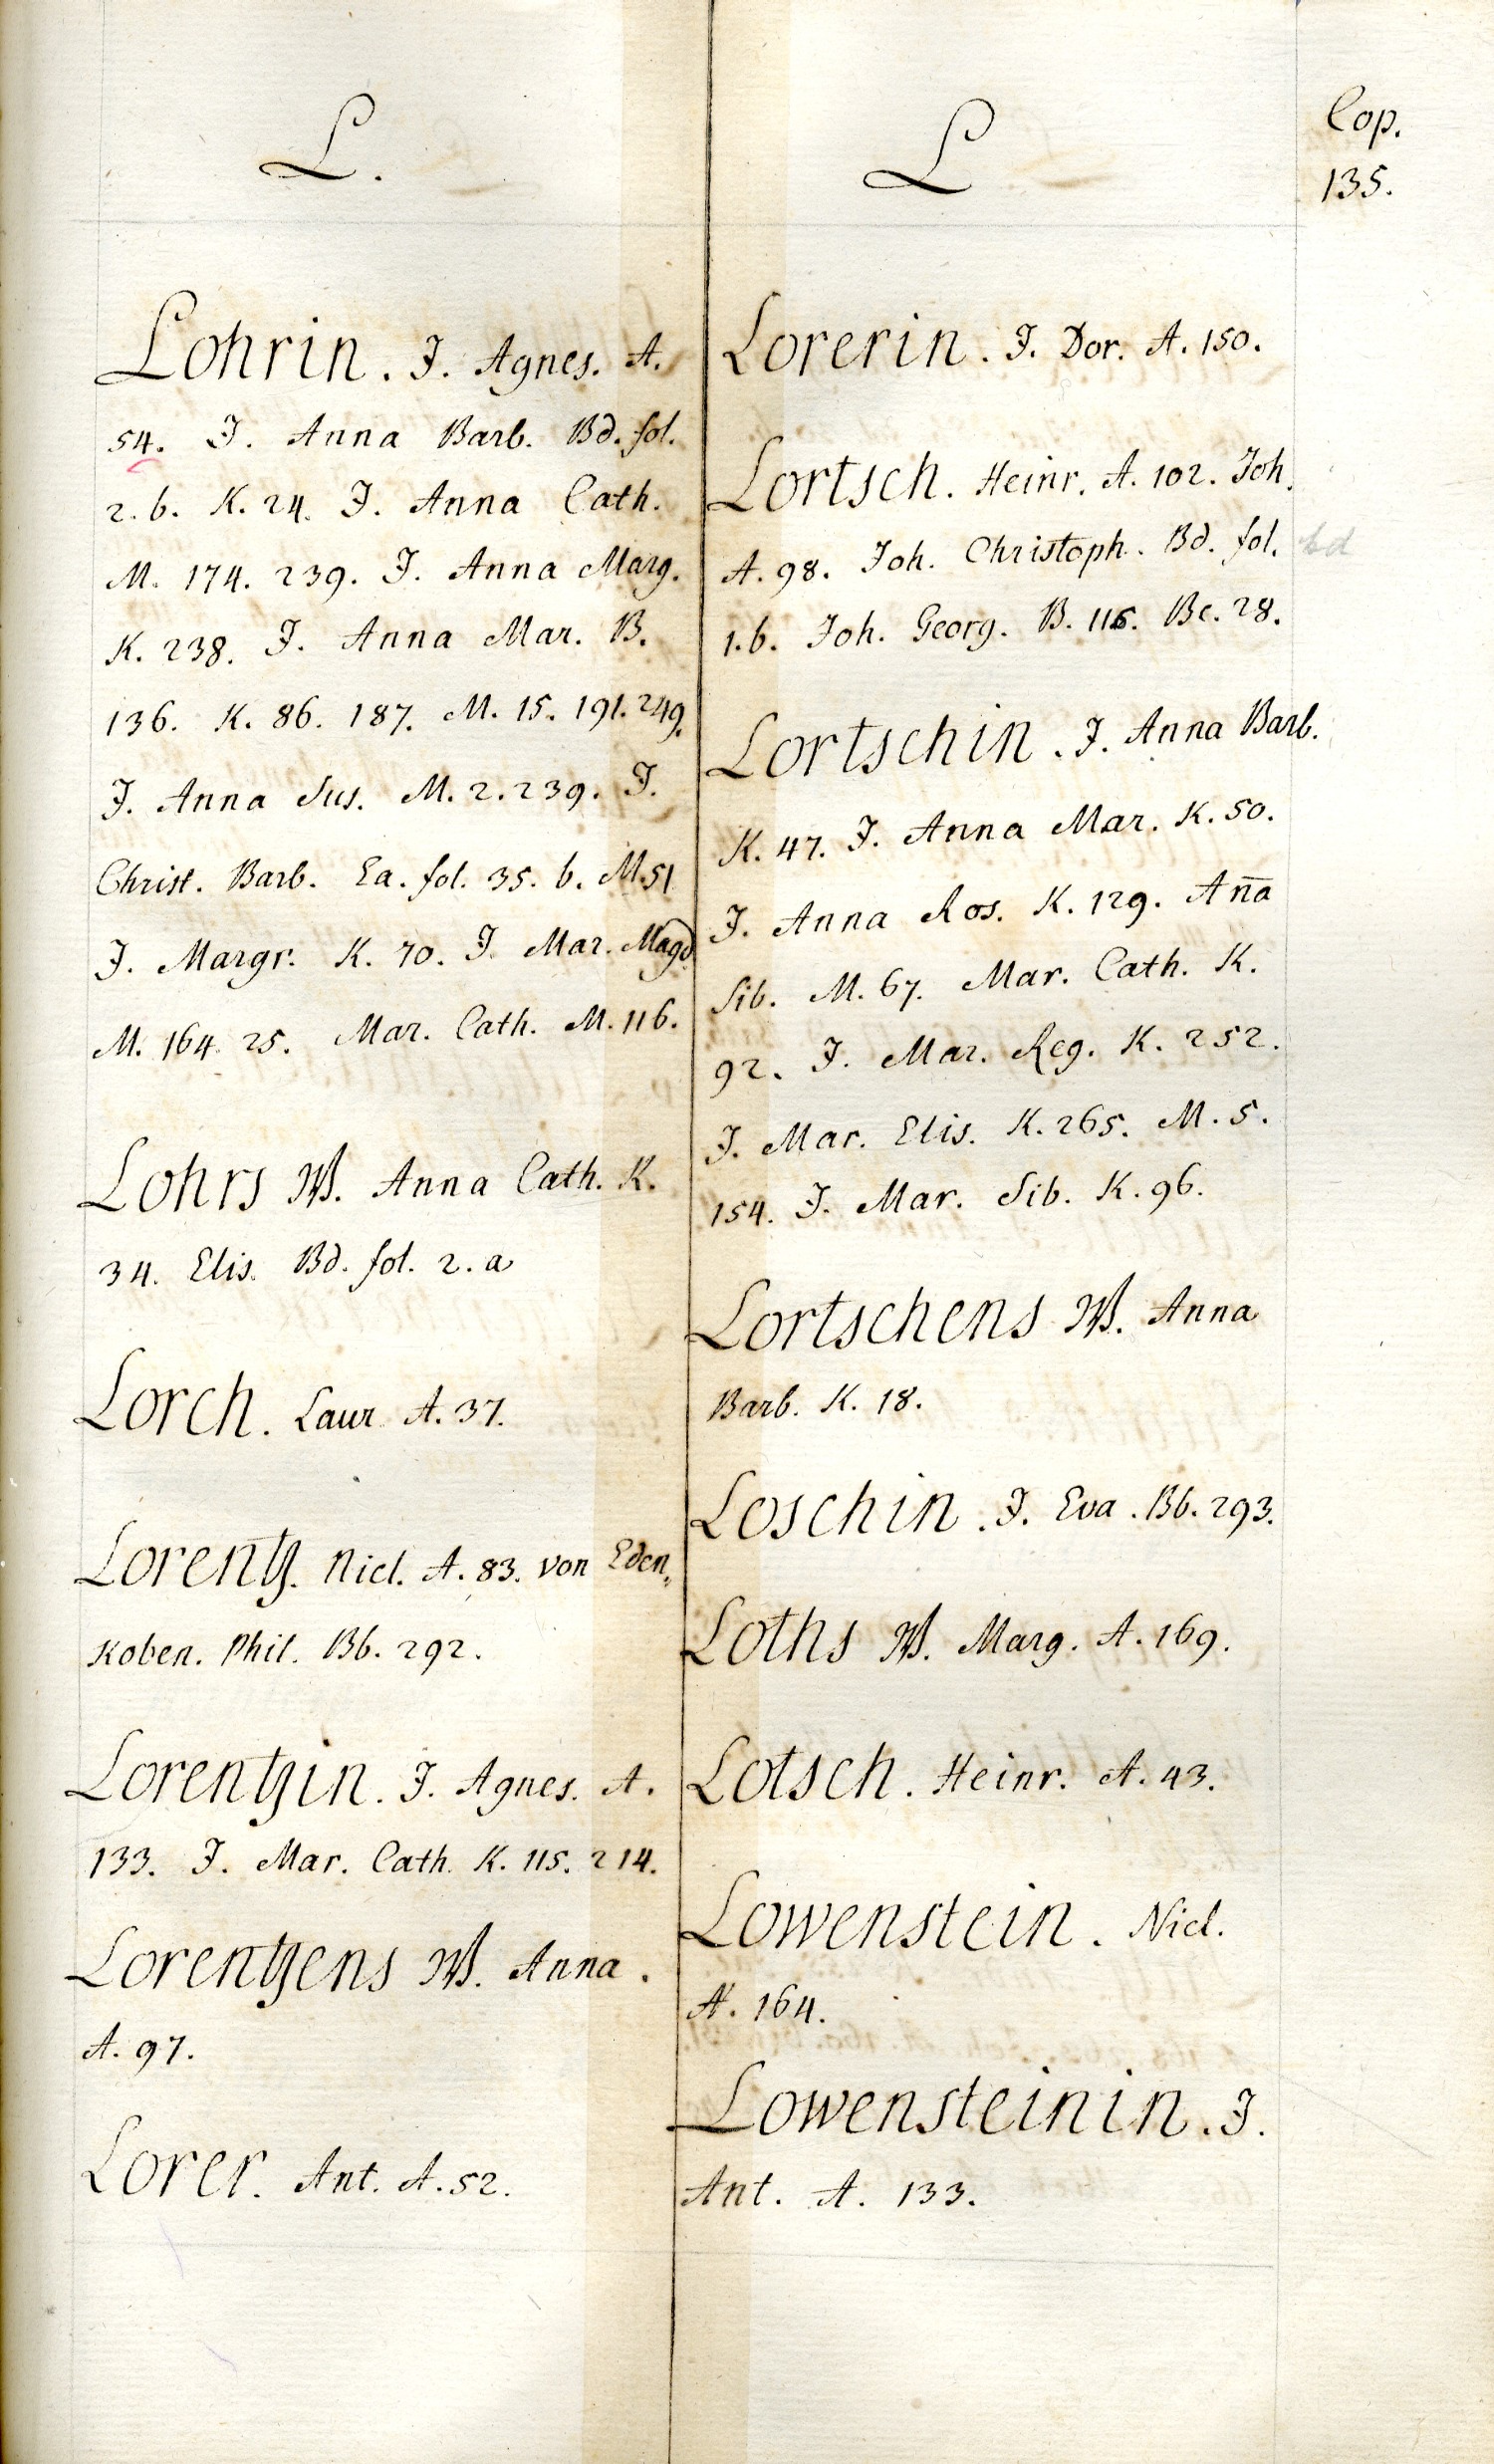 L.
Lohrin. J. Agnes. A.
54. J. Anna Barb. Bd. fol.
2. b. K. 24. J. Anna Cath.
M. 174. 239. J. Anna Marg.
K. 238. J. Anna Mar. B.
136. K. 86. 187. M. 15. 191. 249.
J. Anna Sus. M. 2. 239. J.
Christ. Barb. Ea. fol. 35. b. M. 51
J. Margr. K. 70. J. Mar. Magd
M. 164. 25. Mar. Cath. M. 116.
Lohrs W. Anna Cath. K.
34. Elis. Bd. fol. 2. a
Lorch. Laur. A. 37.
Lorentz. Nicl. A. 83. von Eden„
Koben. Phil. Bb. 292.
Lorentzin. J. Agnes. A.
133. J. Mar. Cath. K. 115. 214.
Lorentzens W. Anna.
A. 97.
Lorer. Ant. A. 52.
L
Lorerin. J. Dor. A. 150.
Lortsch. Heinr. A. 102. Joh.
A. 98. Joh. Christoph. Bd. fol.
bd
1. b. Joh. Georg. B. Bc. 28.
Lortschin. J. Anna Barb.
K. 47. J. Anna Mar. K. 50.
J. Anna Ros. K. 129. An̄a
Sib. M. 67. Mar. Cath. K.
92. J. Mar. Reg. K. 252.
J. Mar. Elis. K. 265. M. 5.
154. J. Mar. Sib. K. 96.
Lortschens W. Anna
Barb. K. 18.
Loschin. J. Eva. Bb. 293.
Loths W. Marg. A. 169.
Lotsch. Heinr. A. 43.
Lowenstein. Nicl.
A. 164.
Lowensteinin. J.
Ant. A. 133.
Cop.
135.